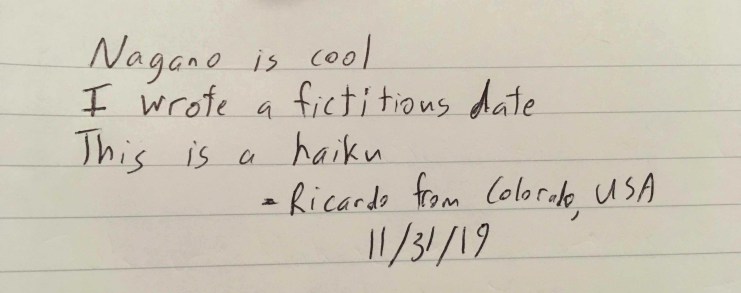 Nagano is cool
I wrote a fictitious date
This is a haiku
- Ricardo from Colorado, USA
11/31/19